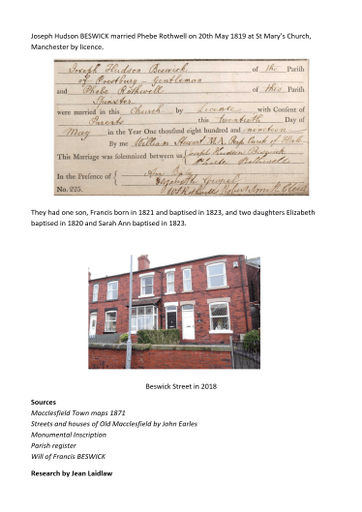 Joseph Hudson BESWICK married Phebe Rothwell on 20th May 1819 at St Mary's Church,
Manchester by licence.
Joseph Hudson Beswick of the Parish
of Prestbury – Gentleman
and Phebe Rothwell of this Parish
Spinster
were married in this Church by Licence with Consent of
Parents this twentieth Day of
May in the Year One thousand eight hundred and nineteen
By me William
This Marriage was solemnized between us { Joseph Hudson Beswick
Phebe Rothwell
In the Presence of {
No. 225.
They had one son, Francis born in 1821 and baptised in 1823, and two daughters Elizabeth
baptised in 1820 and Sarah Ann baptised in 1823.
Beswick Street in 2018
Sources
Macclesfield Town maps 1871
Streets and houses of Old Macclesfield by John Earles
Monumental Inscription
Parish register
Will of Francis BESWICK
Research by Jean Laidlaw